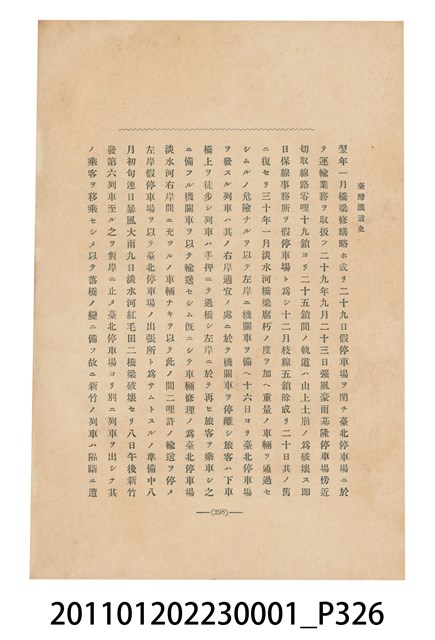 臺灣鐵道史
翌年一月橋梁修繕略ホ成リ二十九日假停車場ヲ閉チ臺北停車場ニ於
テ運輸業務ヲ取扱フ二十九年九月二十三日強風豪雨基隆停車場傍近
切取線路零哩十九鎖ヨリ二十五鎖間ノ軌道ハ山上土崩ノ爲破壞ス即
日保線事務所ヲ假停車場ト爲シ十二月枝線五鎖餘成リ二十日其ノ舊
ニ復セリ三十年一月淡水河橋梁腐朽ノ度ヲ加ヘ重量ノ車輛ヲ通過セ
シムルノ危險ナルヲ以テ左岸ニ機關車ヲ備ヘ十六日ヨリ臺北停車場
ヲ發スル列車ハ其ノ右岸適宜ノ處ニ於テ機關車ヲ停離シ旅客ハ下車
橋上ヲ徒歩シ列車ハ手押ニテ過橋シ左岸ニ於テ再ヒ旅客ヲ乘車シ之
ニ備フル機關車ヲ以テ輸送セシム旣ニシテ車輛修理ノ爲臺北停車場
淡水河右岸間ニ充ツルノ車輛ナキヲ以テ此ノ間二哩許ノ輸送ヲ停メ
左岸假停車場ヲ以テ臺北停車場ノ出張所ト爲サムトスルノ準備中八
月初旬連日暴風大雨九日淡水河紅毛田二橋梁破壞セリ八日午後新竹
發第六列車至ル之ヲ對岸ニ止メ臺北停車場ヨリ別ニ列車ヲ出シテ其
ノ乘客ヲ移乘セシメ以テ落橋ノ變ニ備フ故ニ新竹ノ列車ハ隔斷ニ遭
(298)
201101202230001_P326